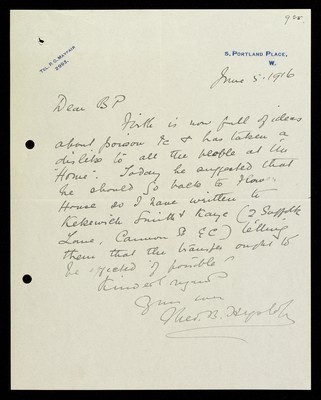 TEL. P.O. MAYFAIR
2993.
5, PORTLAND PLACE,
W.
June 5. 1916
Dear BP
Firth is now full of ideas
about poison &c & has taken a
dislike to all the people at the
"Home". Today he suggested that
he should go back to
House so I have written to
Kekewich Smith & Kaye (2 Suffolk
Lane, Cannon St EC) telling
them that the transfer ought to
be effected if possible
Kindest regards
Yours ever
Theo. B. Hyslop